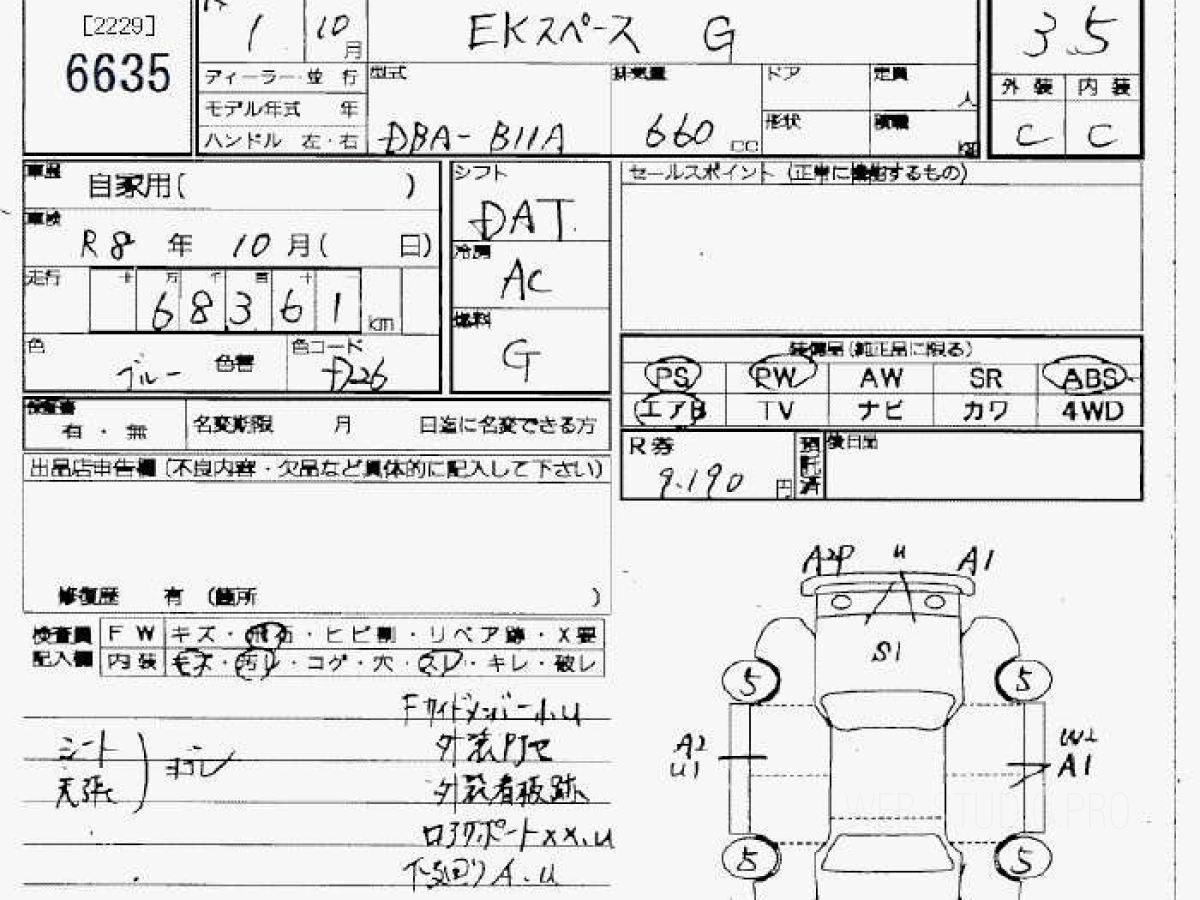 [2229]
6635
1 10月
ディーラー・並行
モデル年式 年
ハンドル 左・右
EKスペース G
型式
DBA-B11A
排気量
660 cc
ドア
定員
人
形状
積載
kg
3.5
外装 内装
C C
車歴
自家用( )
車検
R8年 10月( 日)
走行
十 万 千 百 十 一
68361 km
色
ブルー
色替
色コード
D26
シフト
DAT
冷房
AC
燃料
G
セールスポイント (正常に機能するもの)
装備品(純正品に限る)
PS PW AW SR ABS
エアB TV ナビ カワ 4WD
有・無
名変期限 月 日迄に名変できる方
R券
9.190 円
預託済
後日品
出品店申告欄(不良内容・欠品など具体的に記入して下さい)
修復歴 有 (箇所 )
検査員記入欄
FW キズ・飛石・ヒビ割・リペア跡・X要
内装 キズ・汚レ・コゲ・穴・スレ・キレ・破レ
Fサイドメンバー小U
シート
天張
ヨゴレ
外装門セ
外装看板跡
ロアサポートXX.U
下廻りA.U
A2P U A1
S1
5 5
A2
U1
W2
A1
5 5
WEB STUDIA PRO